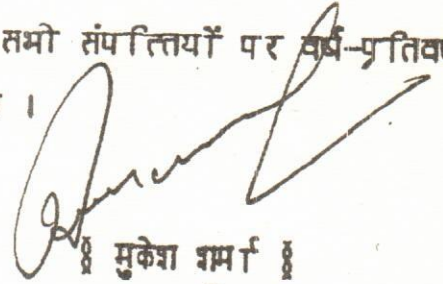 सभी संपत्तियों पर वर्ष-प्रतिवर्ष
।
§ मुकेश शर्मा §